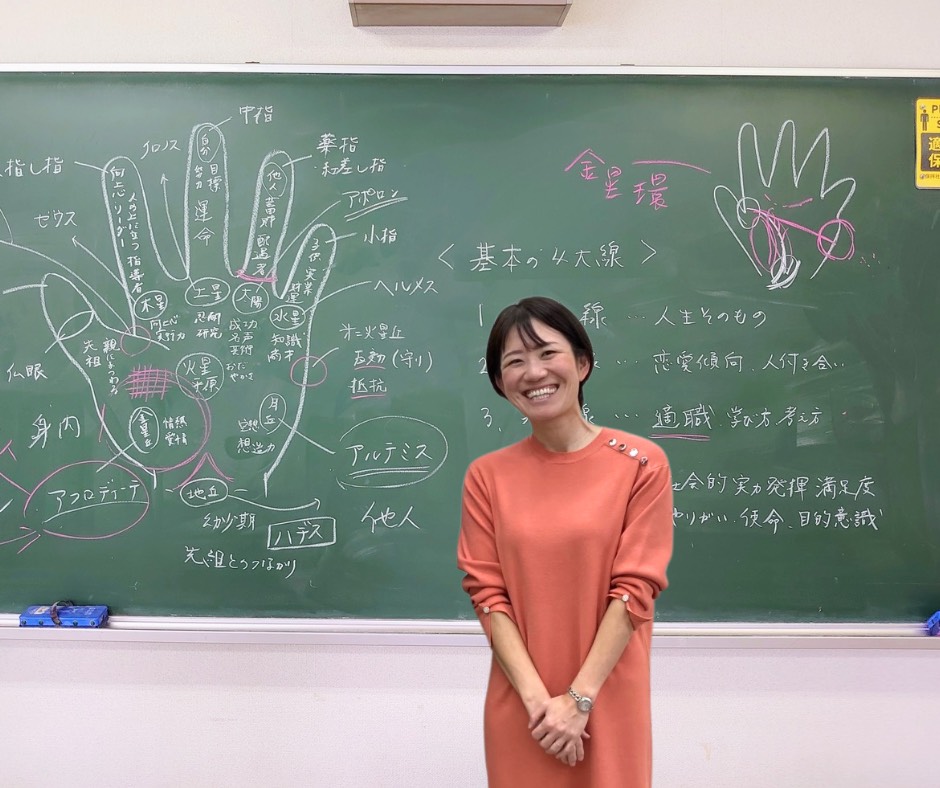 中指
クロノス
薬指
紅差し指
人指し指
アポロン
小指
ゼウス
ヘルメス
向上心・リーダー
人の上に立つ指導者
自分
目標
努力
運命
他人
配遇者
子供
実業
木星
土星
忍耐
研究
太陽
成功
名声
芸術
おだやかさ
水星
知識
商才
先祖
仏眼
火星
平原
第二火星丘
互動(守り)
抵抗
身内
金星丘
情熱
愛情
月丘
空想
想造力
アルテミス
アフロディーテ
地丘
幼少期
ハデス
他人
先祖とのつながり
金星環
〈基本の4大線〉
1.
線…人生そのもの
2
…恋愛傾向、人付き合い
3.
線…適職、学び方考え方
社会的実力発揮 満足度
やりがい・使命、目的意識
適
保